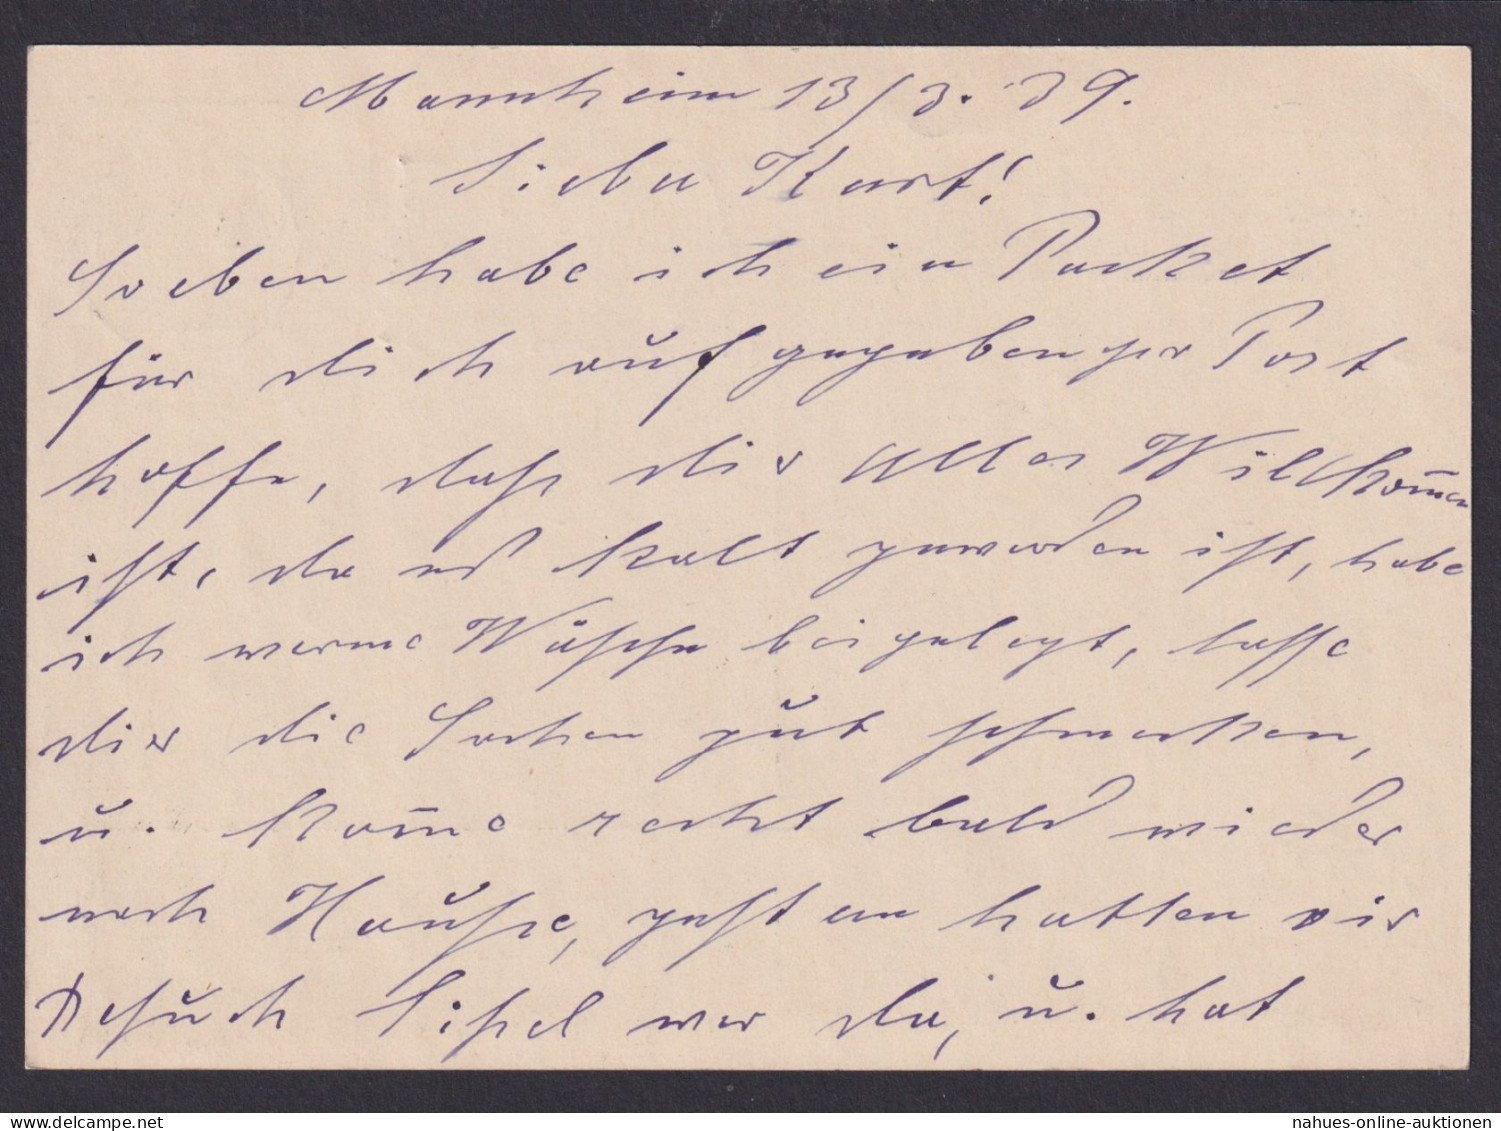 Mannheim 13/3. 39.
Lieber Kurt!
Soeben habe ich ein Packet
für dich aufgegeben per Post
hoffe, daß dir alles Willkom̅en
ist, da es kalt geworden ist, habe
ich warme Wäsche beigelegt, lasse
dir die Sachen gut schmecken,
u. kom̅e recht bald wieder
nach Hause, gestern hatten wir
Besuch Lisel war da, u. hat
nahues-online-auktionen